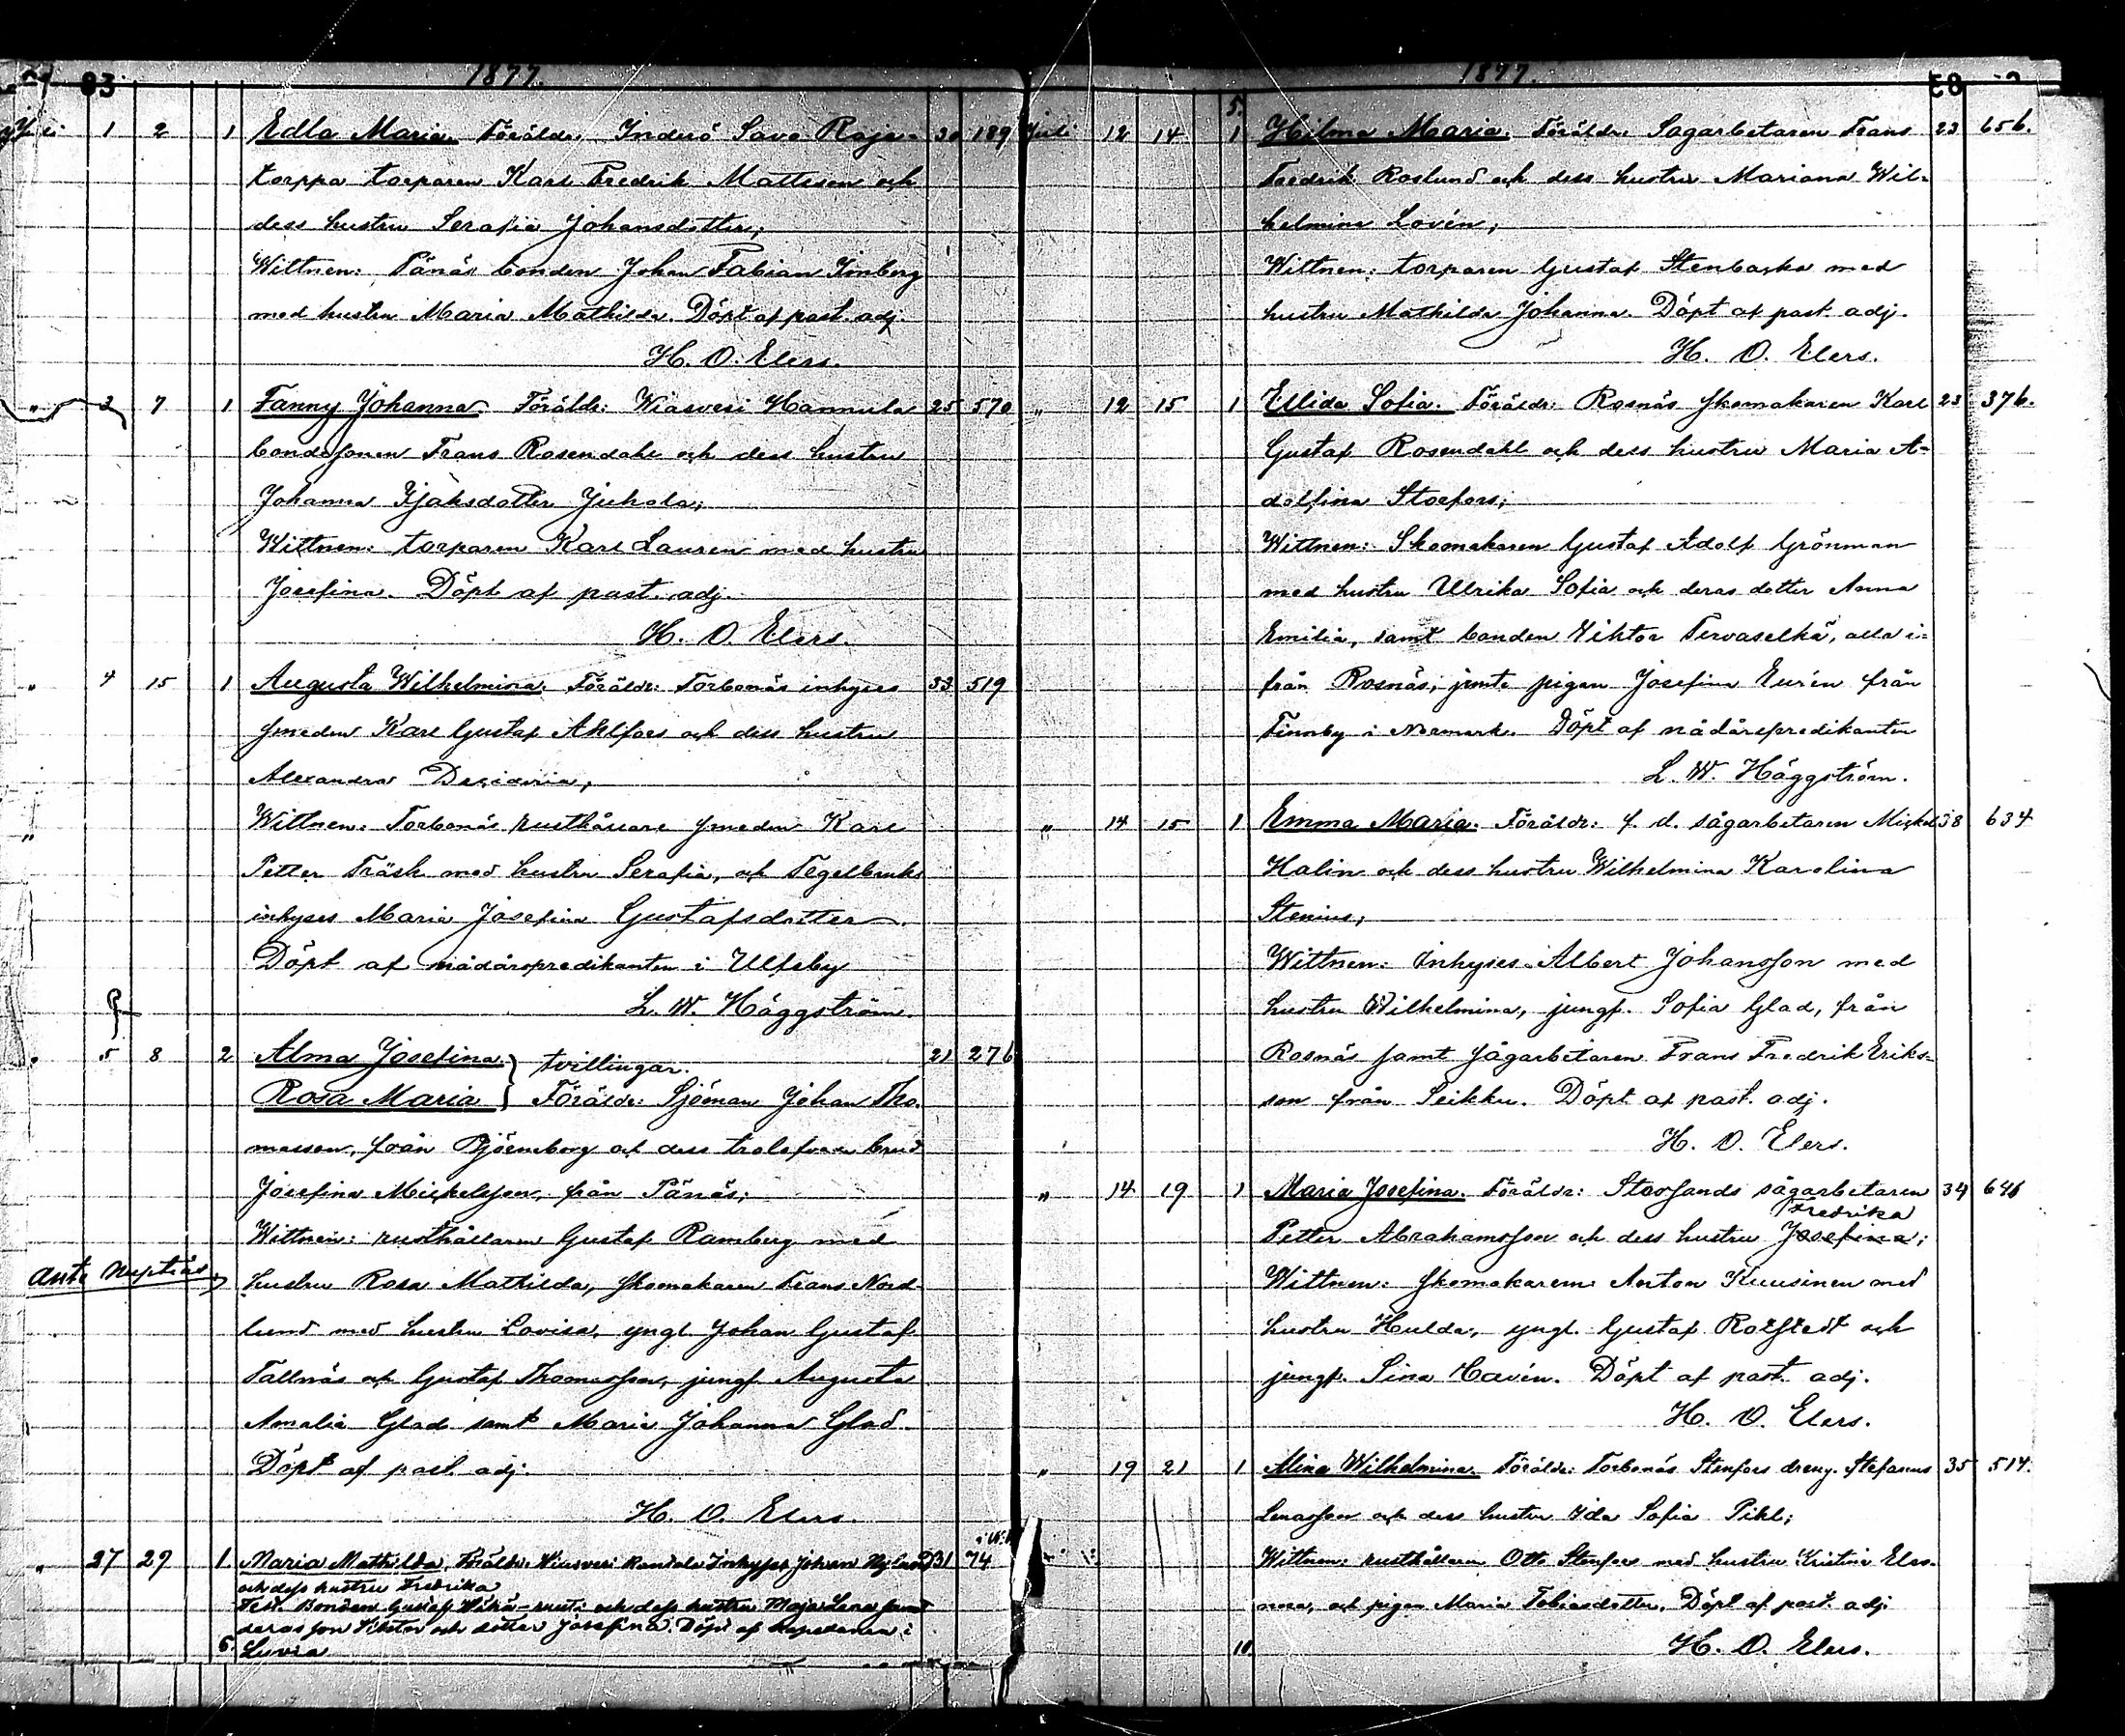 83 1877.
Juli 1 2 1 Edla Maria. Föräldr: Inderö Savo Raja- 30 189
torppa torparen Karl Fredrik Mattsson och
dess hustru Serafia Johansdotter;
Wittnen: Pänäs bonden Johan Fabian Simberg
med hustru Maria Mathilda. Döpt af past. adj.
H. O. Elers.
" 3 7 1 Fanny Johanna. Föräldr: Wiasvesi Hannula 25 570
bondesonen Frans Rosendahl och dess hustru
Johanna Isaksdotter Juhola;
Wittnen: torparen Karl Lauren med hustru
Josefina. Döpt af past. adj.
H. O. Elers.
" 4 15 1 Augusta Wilhelmina. Föräldr: Torbonäs inhyses 33 519
smeden Karl Gustaf Ahlfors och dess hustru
Alexandra Desideria;
Wittnen: Torbonäs rusthållare smeden Karl
Petter Träsk med hustru Serafia, och Tegelbruks
inhyses Maria Josefina Gustafsdotter.
Döpt af nådårspredikanten i Ulfsby
L. W. Häggström.
" 5 8 2 Alma Josefina } tvillingar. 21 276
Rosa Maria } Föräldr: Sjöman Johan Tho-
masson, från Björneborg och dess trolofvade brud
Josefina Mickelsson, från Pänäs;
Wittnen: rusthållaren Gustaf Ramberg med
Ante nuptias. hustru Rosa Mathilda, skomakaren Frans Nord-
lund med hustru Lovisa, yngl. Johan Gustaf
Tallnäs och Gustaf Thomasson, jungf. Augusta
Amalia Glad samt Maria Johanna Glad.
Döpt af past. adj.
H. O. Elers.
" 27 29 1 Maria Mathilda, Föräldr: Wiasvesi Inhyses Johan Nylund 31 74
och dess hustru Fredrika
Test. Bonden Gustaf och dess hustru Maja Lena samt
deras son Viktor och dotter Josefina. Döpt af kapellanen i
6. Luvia
1877. 83
5.
Juli 12 14 1 Hilma Maria. Föräldr: Sågarbetaren Frans 23 656.
Fredrik Roslund och dess hustru Mariana Wil-
helmina Lovén;
Wittnen: torparen Gustaf Stenbacka med
hustru Mathilda Johanna. Döpt af past. adj.
H. O. Elers.
" 12 15 1 Ellida Sofia. Föräldr: Rosnäs skomakaren Karl 23 376.
Gustaf Rosendahl och dess hustru Maria A-
dolfina Storfors;
Wittnen: Skomakaren Gustaf Adolf Grönman
med hustru Ulrika Sofia och deras dotter Anna
Emilia, samt bonden Viktor Tervaselkä, alla i-
från Rosnäs, jemte pigan Josefina Eurén från
Finnby i Normark. Döpt af nådårspredikanten
L. W. Häggström.
" 14 15 1 Emma Maria. Föräldr: f. d. sågarbetaren Mickel 38 634
Halin och dess hustru Wilhelmina Karolina
Stenius;
Wittnen: Inhyses Albert Johansson med
hustru Wilhelmina, jungf. Sofia Glad, från
Rosnäs samt sågarbetaren Frans Fredrik Eriks-
son från Seikku. Döpt af past. adj.
H. O. Elers.
" 14 19 1 Maria Josefina. Föräldr: Storsands sågarbetaren 34 646
Fredrika
Petter Abrahamsson och dess hustru Josefina;
Wittnen: skomakaren Anton Kuusinen med
hustru Hulda, yngl. Gustaf Rotstedt och
jungf. Sina Cavén. Döpt af past. adj.
H. O. Elers.
" 19 21 1 Alina Wilhelmina. Föräldr: Torbonäs Stenfors dreng. Stefanus 35 514.
Lenasson och dess hustru Ida Sofia Pihl;
Wittnen: rusthållaren Otto Stenfors med hustru Kristina Eleo-
nora, och pigan Maria Tobiasdotter. Döpt af past. adj.
10. H. O. Elers.